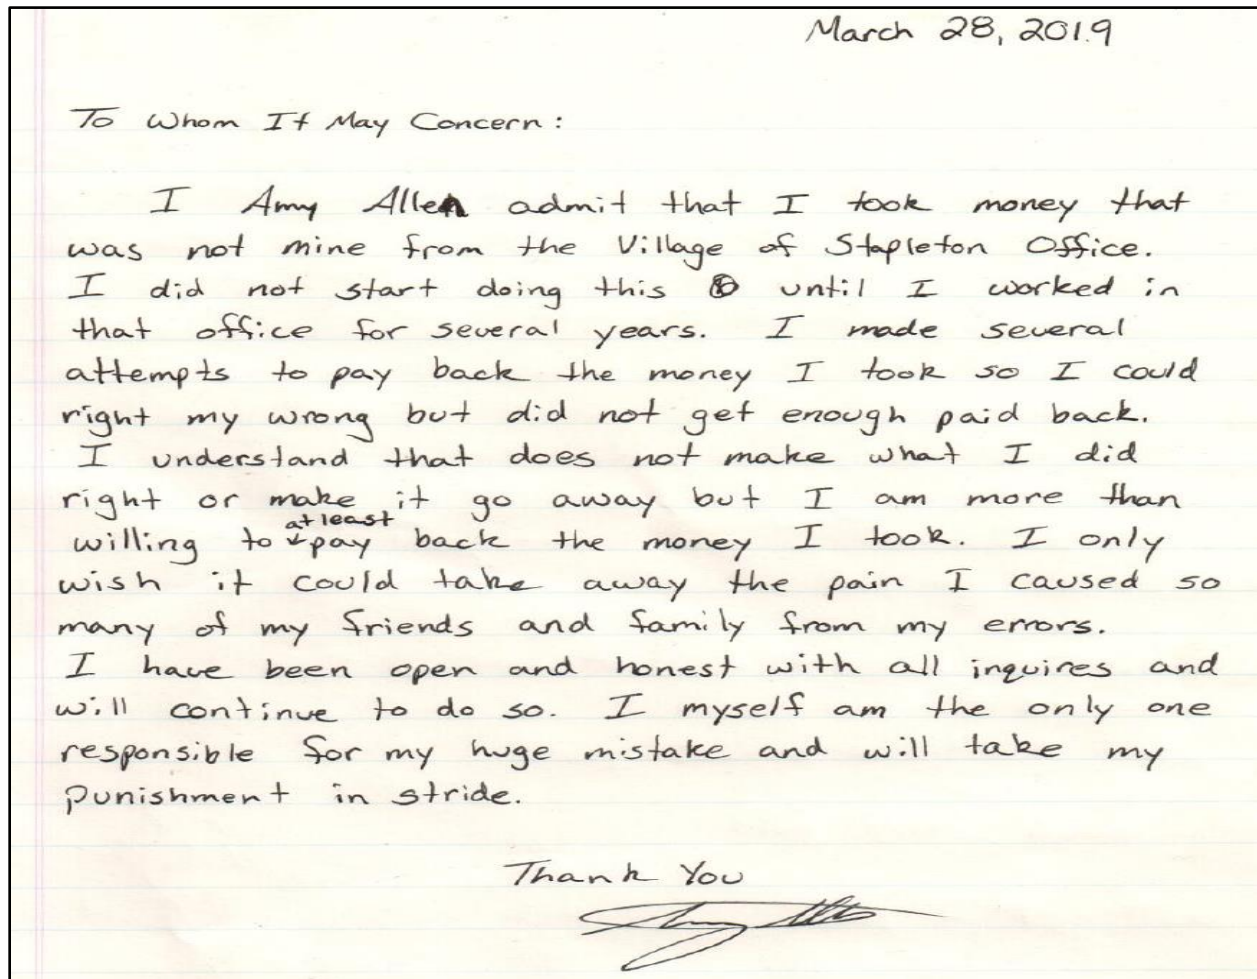 March 28, 2019
To Whom It May Concern:
I Amy Allen admit that I took money that
was not mine from the Village of Stapleton Office.
I did not start doing this until I worked in
that office for several years. I made several
attempts to pay back the money I took so I could
right my wrong but did not get enough paid back.
I understand that does not make what I did
right or make it go away but I am more than
willing to at least pay back the money I took. I only
wish it could take away the pain I caused so
many of my friends and family from my errors.
I have been open and honest with all inquires and
will continue to do so. I myself am the only one
responsible for my huge mistake and will take my
punishment in stride.
Thank You